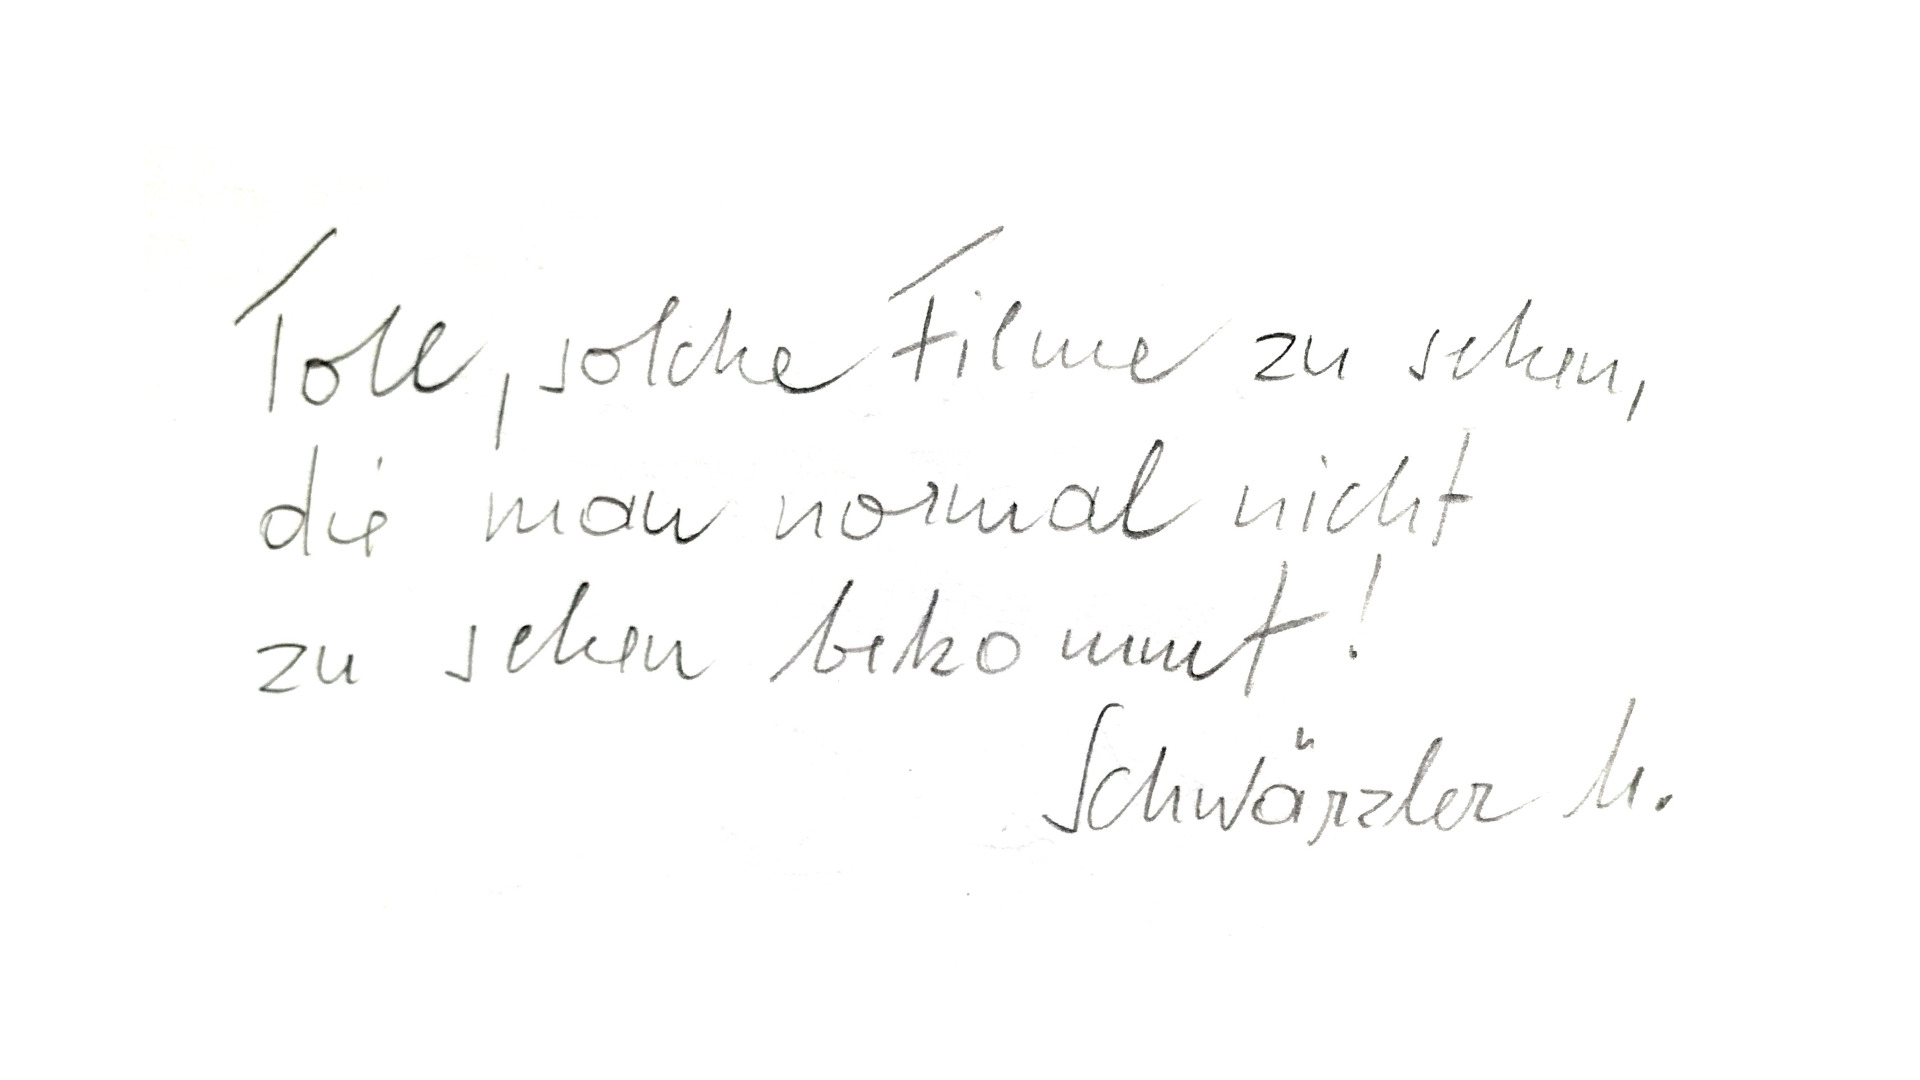 Toll, solche Filme zu sehen,
die man normal nicht
zu sehen bekommt!
Schwärzler